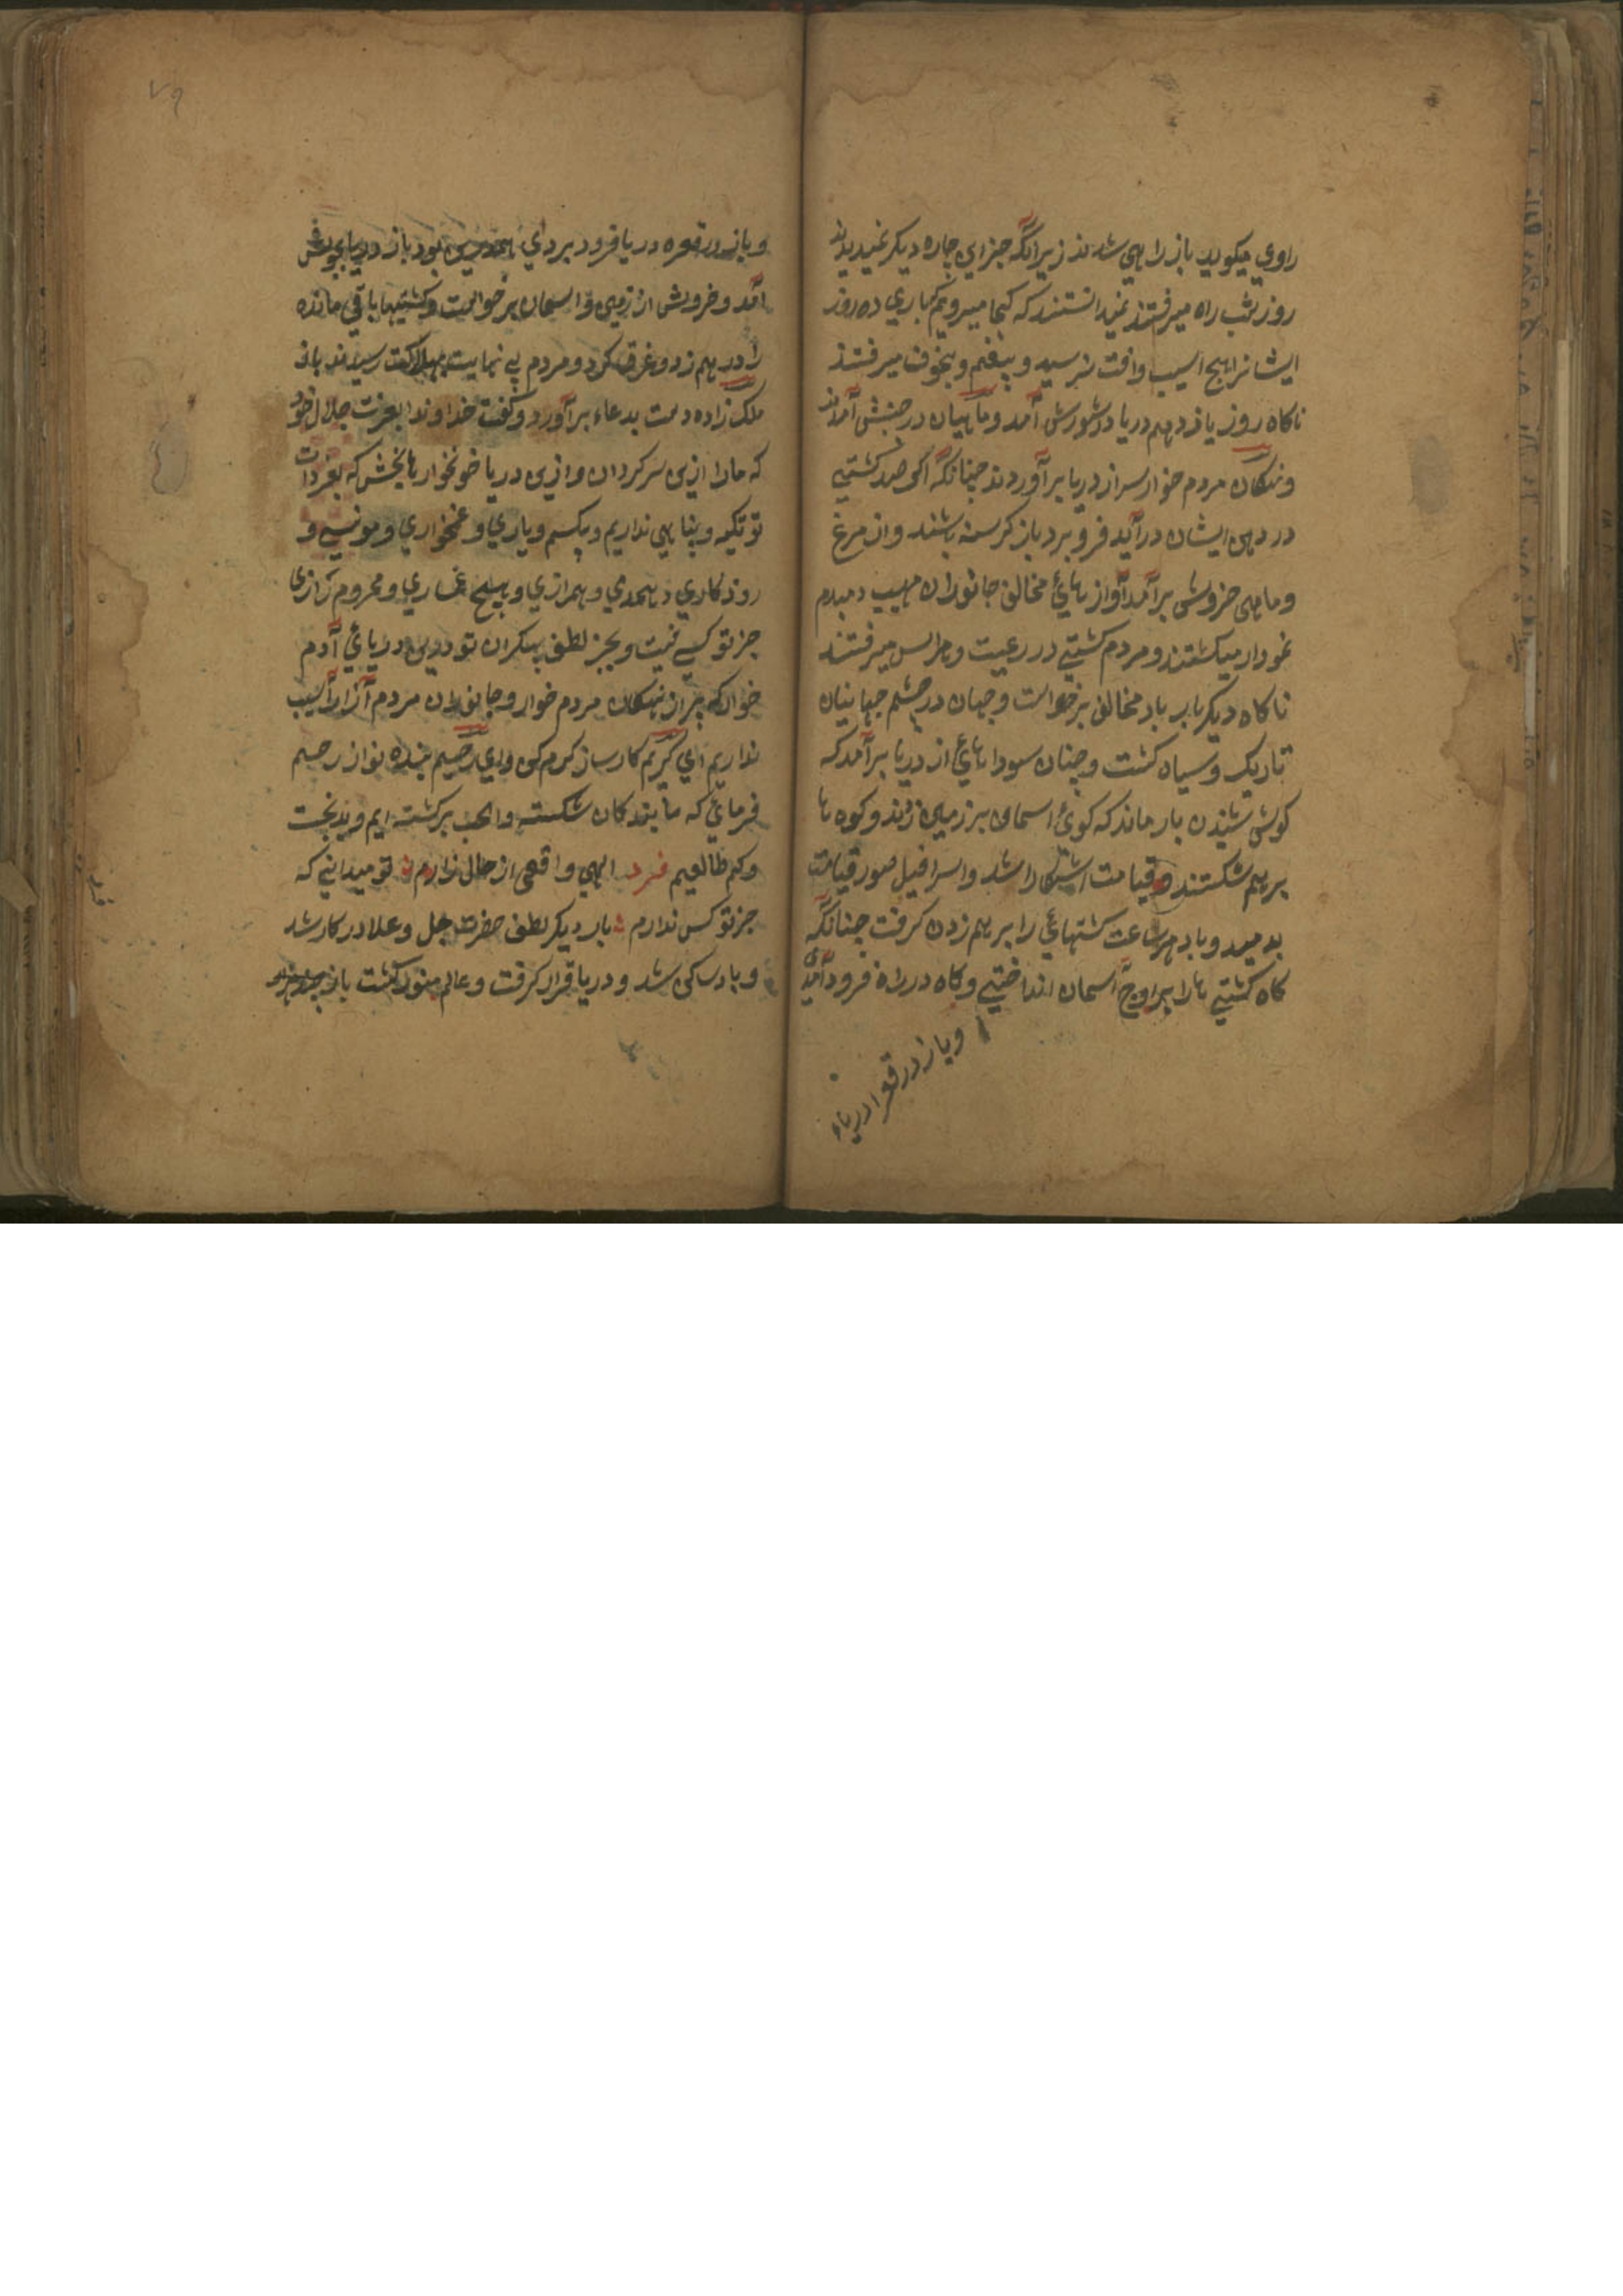 راوي ميكويد باز راهي شدند زيرانكه جزاين چاره ديكر نميديدند
روز شب راه ميرفتند نميدانستند كه كجا ميرويم باري ده روز
ايشانرا هيچ اسيب وافت نرسيد و بيغم و بيخوف ميرفتند
ناكاه روز يازدهم دريا در شورش آمد و ماهيان در جنبش آمدند
ونهنكان مردم خوار سر از دريا برآوردند چنانكه اكر صد كشتي
در دهن ايشان درآيد فرو برد باز كرسنه باشند واز مرغ
وماهي خروش برآمد آواز هائ مخالف جانوران مهيب دمبدم
نمودار ميكشتند و مردم كشتي در رعيت وهراس ميرفتند
ناكاه ديكر بار باد مخالف برخواست وجهان در چشم جهانيان
تاريك وسياه كشت وچنان سوداهائ از دريا برآمد كه
كوش شنيدن باز ماند كه كوئ اسمان بر زمين زدند وكوه ها
برهم شكستند و قيامت اشكارا شد واسرافيل صور قيامت
بدميد وباد هر ساعت كشتهائ را برهم زدن كرفت چنانكه
كاه كشتي ها را بر اوج آسمان انداختي وكاه در فرود آمدي
وباز در قعر ادرياء
٧٩
وباز در قعره دريا فرود بردي همدرين بود باز درياي بجوش
آمد وخروش از زمين و اسمان برخواست وكشتيها باقي مانده
را در هم زد و غرق كرد و مردم بي نهايت بهلاكت رسيدند باز
ملك زاده دست بدعاء برآورد وكفت خداوندا بعزت جلال خود
كه مارا ازين سركردان وازين دريا خونخوار ها بخش كه بغير ذات
تو تكيه وپناهي نداريم وبيكسم وياري وغمخواري ومونسي و
روزكاري وهمدمي وهمرازي وهيچ غساري ومحروم رازي
جز تو كسي نيست وبجز لطف بيكران تو درين درياي آدم
خوار كه پر از نهنكان مردم خوار وجانوران مردم آزار آسيب
نداريم اي كريم كارساز كرم كن واي رحيم بنده نواز رحيم
فرماي كه ما بندكان شكسته و بركشته ايم وبدبخت
وكم طالعيم فرد الهي واقفي از حال زارم تو ميداني كه
جز تو كس ندارم بار ديكر لطف حضرت جل وعلا در كار شد
و باد ساكن شد و دريا قرار كرفت وعالم منور كشت باز